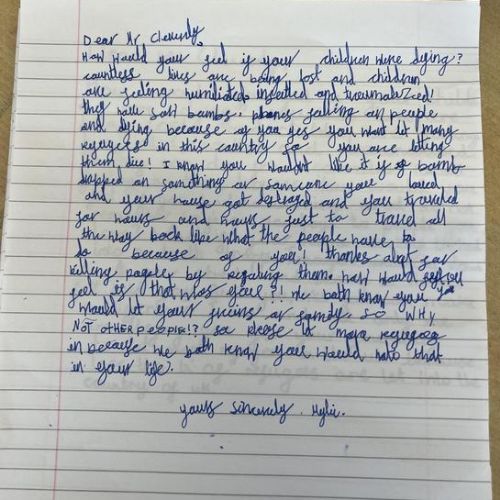 Dear Mr Cleverly,
How would you feel if your children were dying?
countless lives are being lost and children
are feeling humiliated insulted and traumatized!
they have saw bombs, planes falling on people
and dying because of you yes you wont let many
refugees in this country so you are leting
them die! I know you wouldnt like it if a bomb
dropped on something or someone you loved
and your house got destroyed and you traveled
for hours and hours just to travel all
the way back like what the people have to
do because of you! thanks alot for
killing people by rejecting them. how would you
feel if that was you?! We both know you
would let your friends or family so WHY
NOT other people!? so please let more refugees
in because we both know you would hate that
in your life.
yours sincerely.